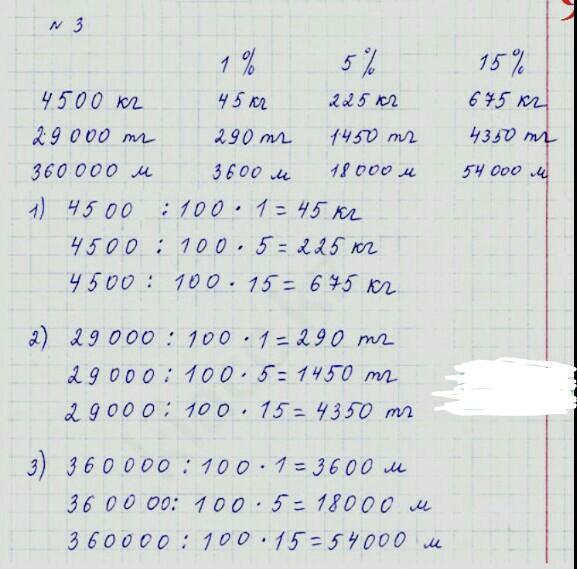 № 3
1% 5% 15%
4500 кг 45 кг 225 кг 675 кг
29000 тг 290 тг 1450 тг 4350 тг
360000 м 3600 м 18000 м 54000 м
1) 4500 : 100 · 1 = 45 кг
4500 : 100 · 5 = 225 кг
4500 : 100 · 15 = 675 кг
2) 29000 : 100 · 1 = 290 тг
29000 : 100 · 5 = 1450 тг
29000 : 100 · 15 = 4350 тг
3) 360000 : 100 · 1 = 3600 м
360000 : 100 · 5 = 18000 м
360000 : 100 · 15 = 54000 м